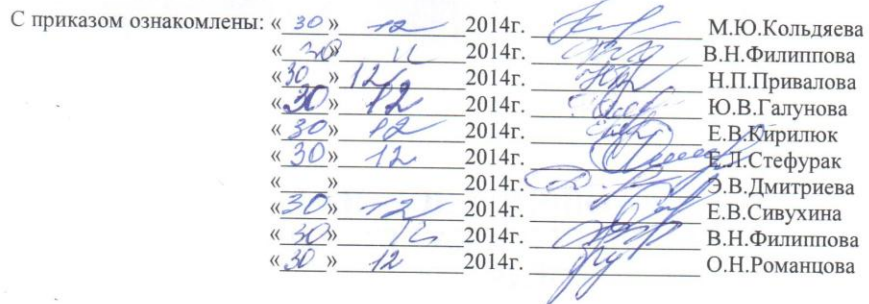 С приказом ознакомлены: « 30 » 12 2014г. М.Ю.Кольдяева
« 30 » 12 2014г. В.Н.Филиппова
« 30 » 12 2014г. Н.П.Привалова
« 30 » 12 2014г. Ю.В.Галунова
« 30 » 12 2014г. Е.В.Кирилюк
« 30 » 12 2014г. Е.Л.Стефурак
« » 2014г. Э.В.Дмитриева
« 30 » 12 2014г. Е.В.Сивухина
« 30 » 12 2014г. В.Н.Филиппова
« 30 » 12 2014г. О.Н.Романцова